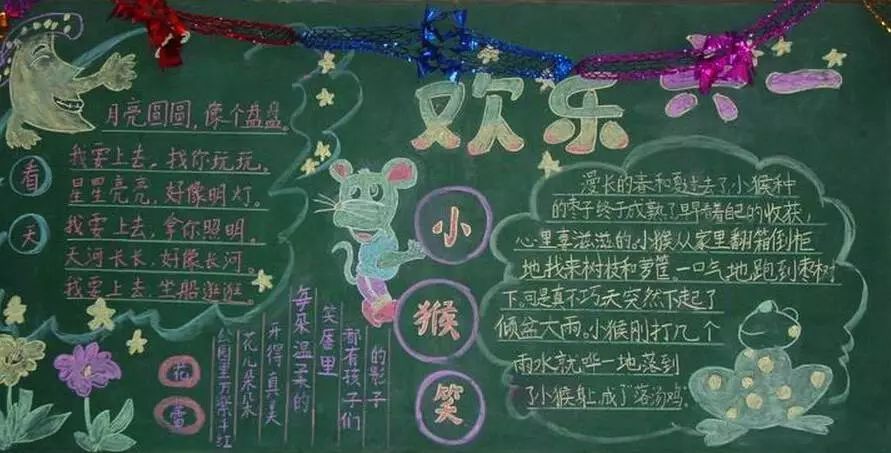 欢乐六一
看天
月亮圆圆,像个盘盘。
我要上去,找你玩玩。
星星亮亮,好像明灯。
我要上去,拿你照明。
天河长长,好像长河。
我要上去,坐船逛逛。
花蕾
公园里万紫千红
花儿朵朵
开得真美
每朵温柔的
笑靥里
都有孩子们
的影子
小猴笑
漫长的春和夏过去了,小猴种
的枣子终于成熟了.看着自己的收获,
心里喜滋滋的。小猴从家里翻箱倒柜
地找来树枝和萝筐。一口气地跑到枣树
下.可是真不巧天突然下起了
倾盆大雨。小猴刚打几个
雨水就哗一地落到
了小猴身上,成了落汤鸡。